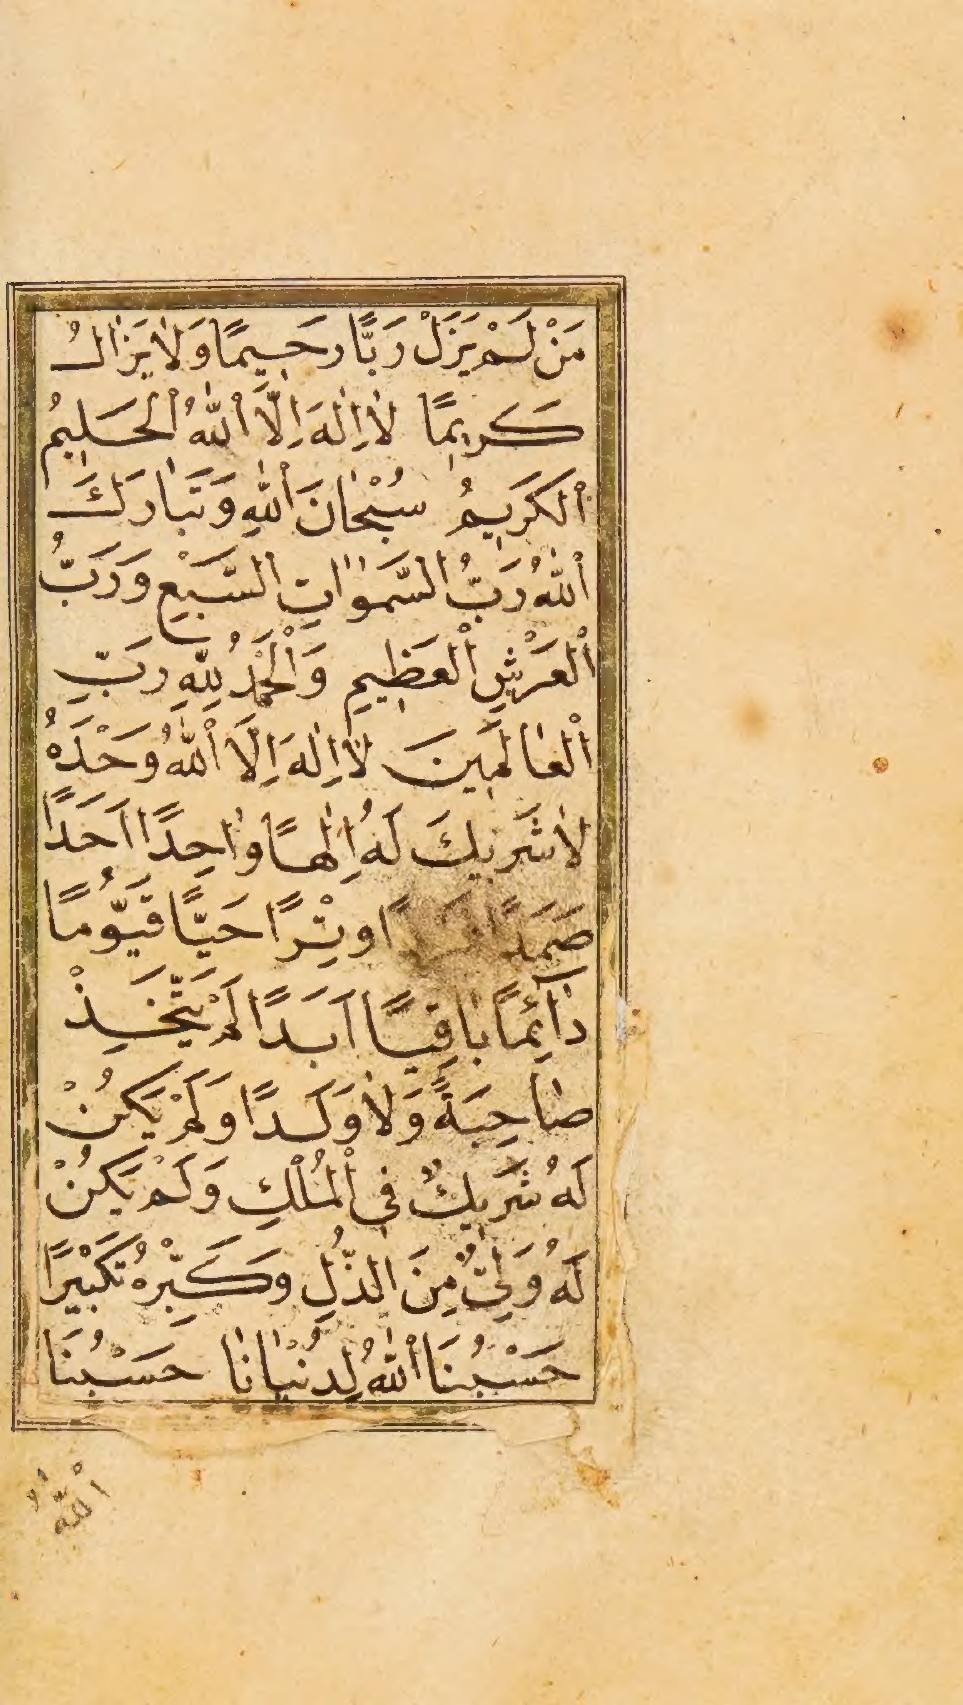 مَنْ لَمْ يَزَلْ رَبًّا رَحِيمًا وَلَا يَزَالُ
كَرِيمًا لَا اِلٰهَ اِلَّا اللّٰهُ الْحَلِيمُ
الْكَرِيمُ سُبْحَانَ اللّٰهِ وَتَبَارَكَ
اللّٰهُ رَبُّ السَّمٰوَاتِ السَّبْعِ وَرَبُّ
الْعَرْشِ الْعَظِيمِ وَالْحَمْدُ لِلّٰهِ رَبِّ
الْعَالَمِينَ لَا اِلٰهَ اِلَّا اللّٰهُ وَحْدَهُ
لَا شَرِيكَ لَهُ اِلٰهًا وَاحِدًا اَحَدًا
صَمَدًا فَرْدًا وِتْرًا حَيًّا قَيُّومًا
دَآئِمًا بَاقِيًا اَبَدًا لَمْ يَتَّخِذْ
صَاحِبَةً وَلَا وَلَدًا وَلَمْ يَكُنْ
لَهُ شَرِيكٌ فِي الْمُلْكِ وَلَمْ يَكُنْ
لَهُ وَلِيٌّ مِنَ الذُّلِ وَكَبِّرْهُ تَكْبِيْرًا
حَسْبُنَا اللّٰهُ لِدُنْيَانَا حَسْبُنَا
اللّٰهُ